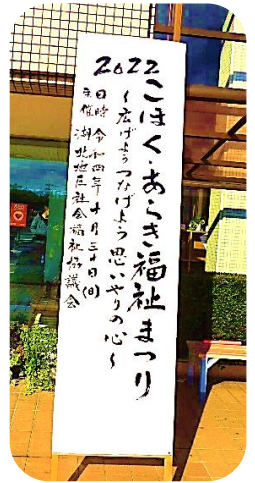 2022
こほく・あらき福祉まつり
～広げようつなげよう思いやりの心～
日時 令和四年十月三十日(日)
主催 湖北地区社会福祉協議会